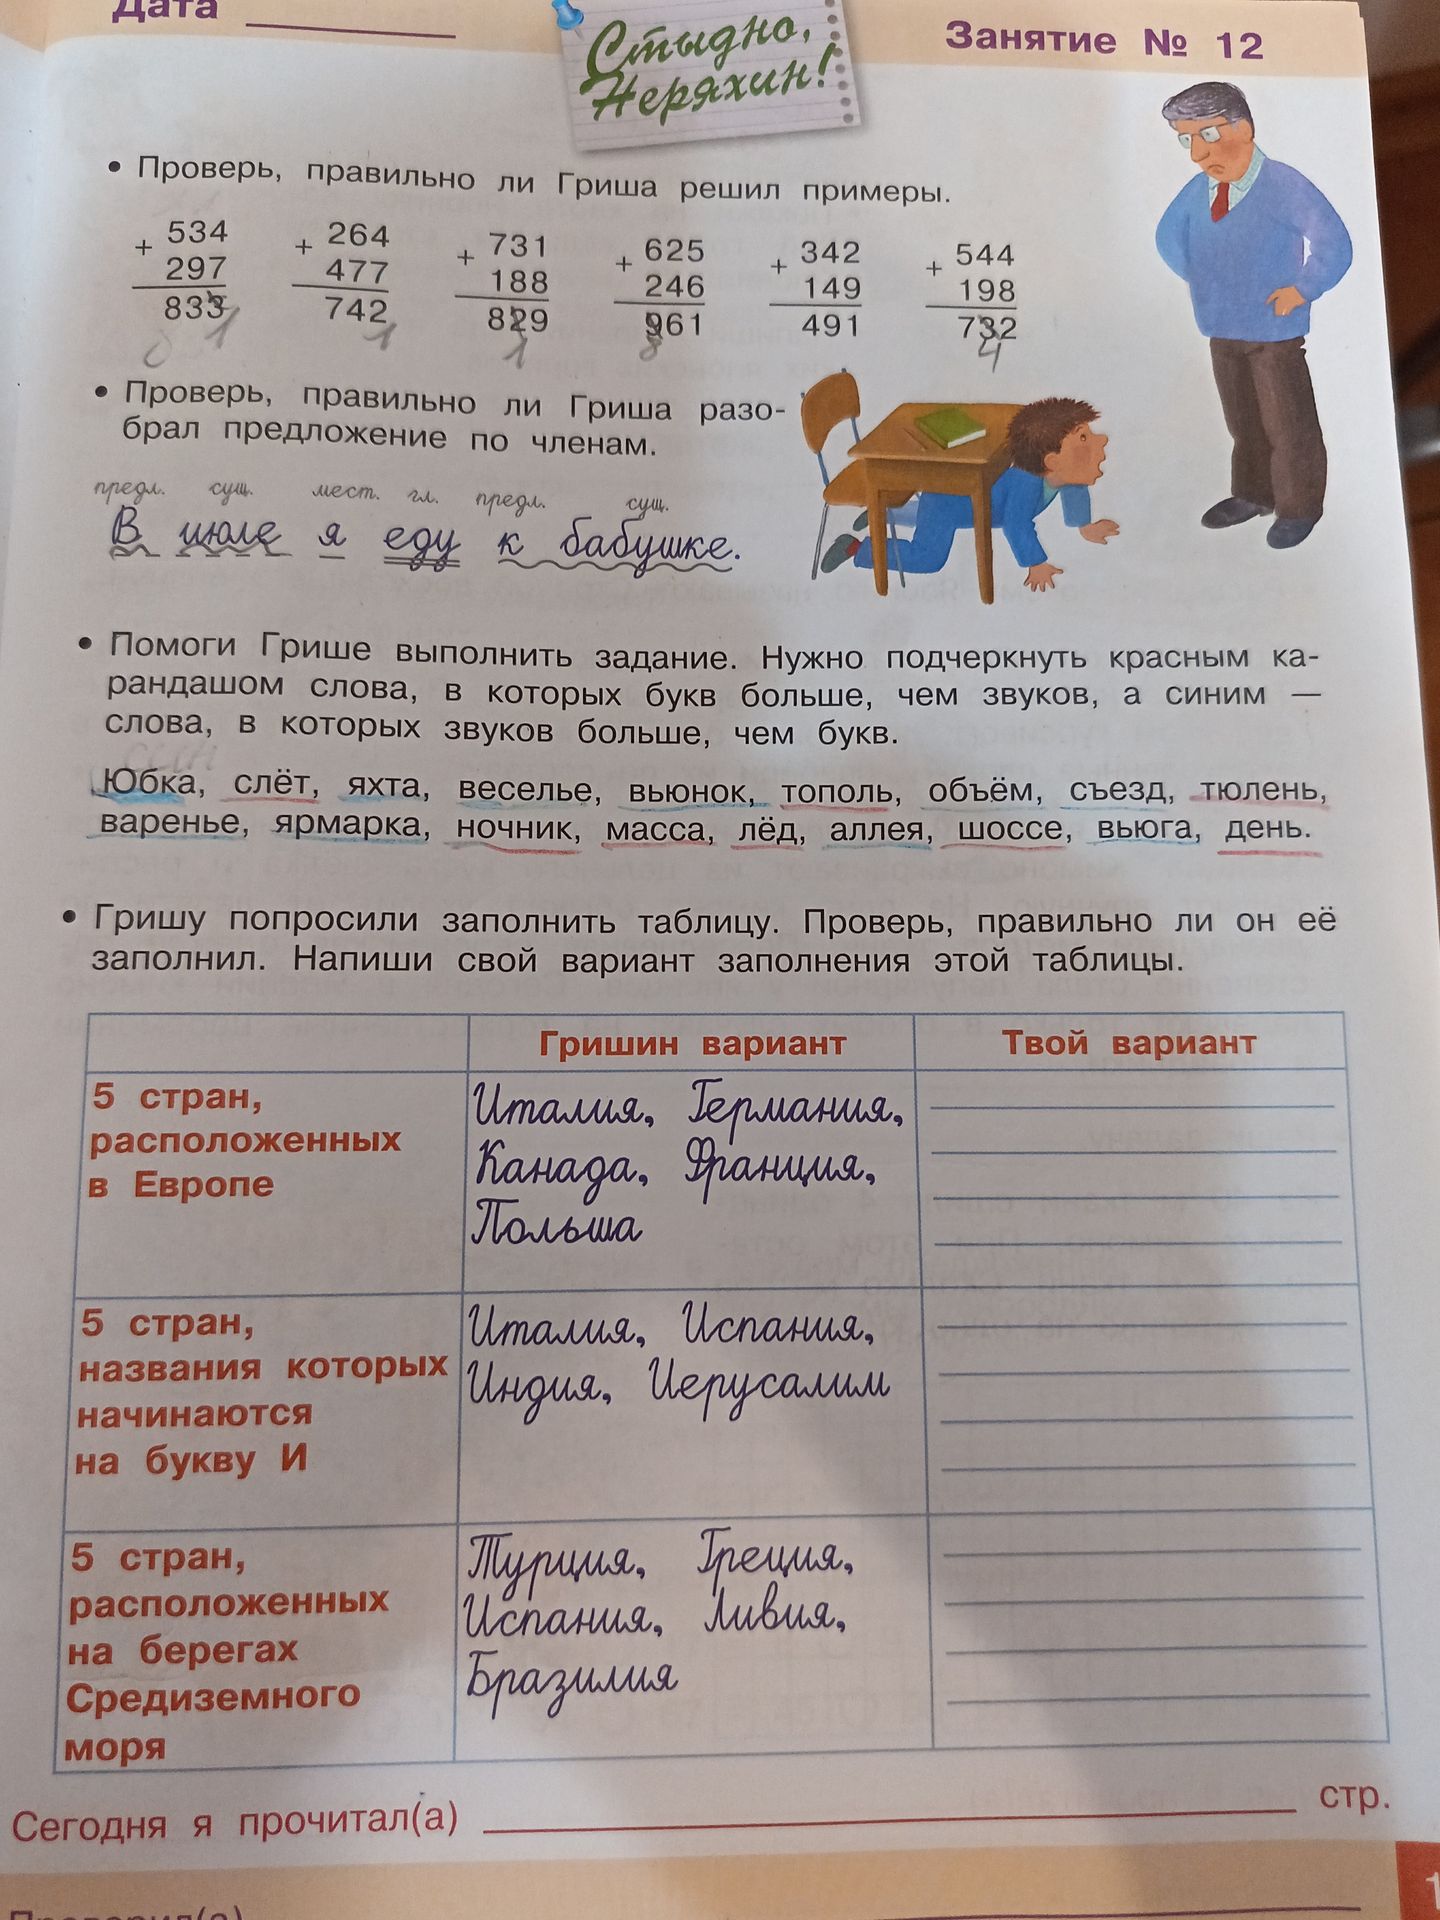 Дата
Занятие № 12
Стыдно,
Неряхин!
• Проверь, правильно ли Гриша решил примеры.
+ 534 + 264 + 731 + 625 + 342 + 544
297 477 188 246 149 198
833 742 829 961 491 732
1 1 1 8 4
• Проверь, правильно ли Гриша разо-
брал предложение по членам.
предл. сущ. мест. гл. предл. сущ.
В июле я еду к бабушке.
• Помоги Грише выполнить задание. Нужно подчеркнуть красным ка-
рандашом слова, в которых букв больше, чем звуков, а синим —
слова, в которых звуков больше, чем букв.
Юбка, слёт, яхта, веселье, вьюнок, тополь, объём, съезд, тюлень,
варенье, ярмарка, ночник, масса, лёд, аллея, шоссе, вьюга, день.
• Гришу попросили заполнить таблицу. Проверь, правильно ли он её
заполнил. Напиши свой вариант заполнения этой таблицы.
Гришин вариант Твой вариант
5 стран,
расположенных
в Европе
Италия, Германия,
Канада, Франция,
Польша
5 стран,
названия которых
начинаются
на букву И
Италия, Испания,
Индия, Иерусалим
5 стран,
расположенных
на берегах
Средиземного
моря
Турция, Греция,
Испания, Ливия,
Бразилия
Сегодня я прочитал(а) стр.
Проверил(а)